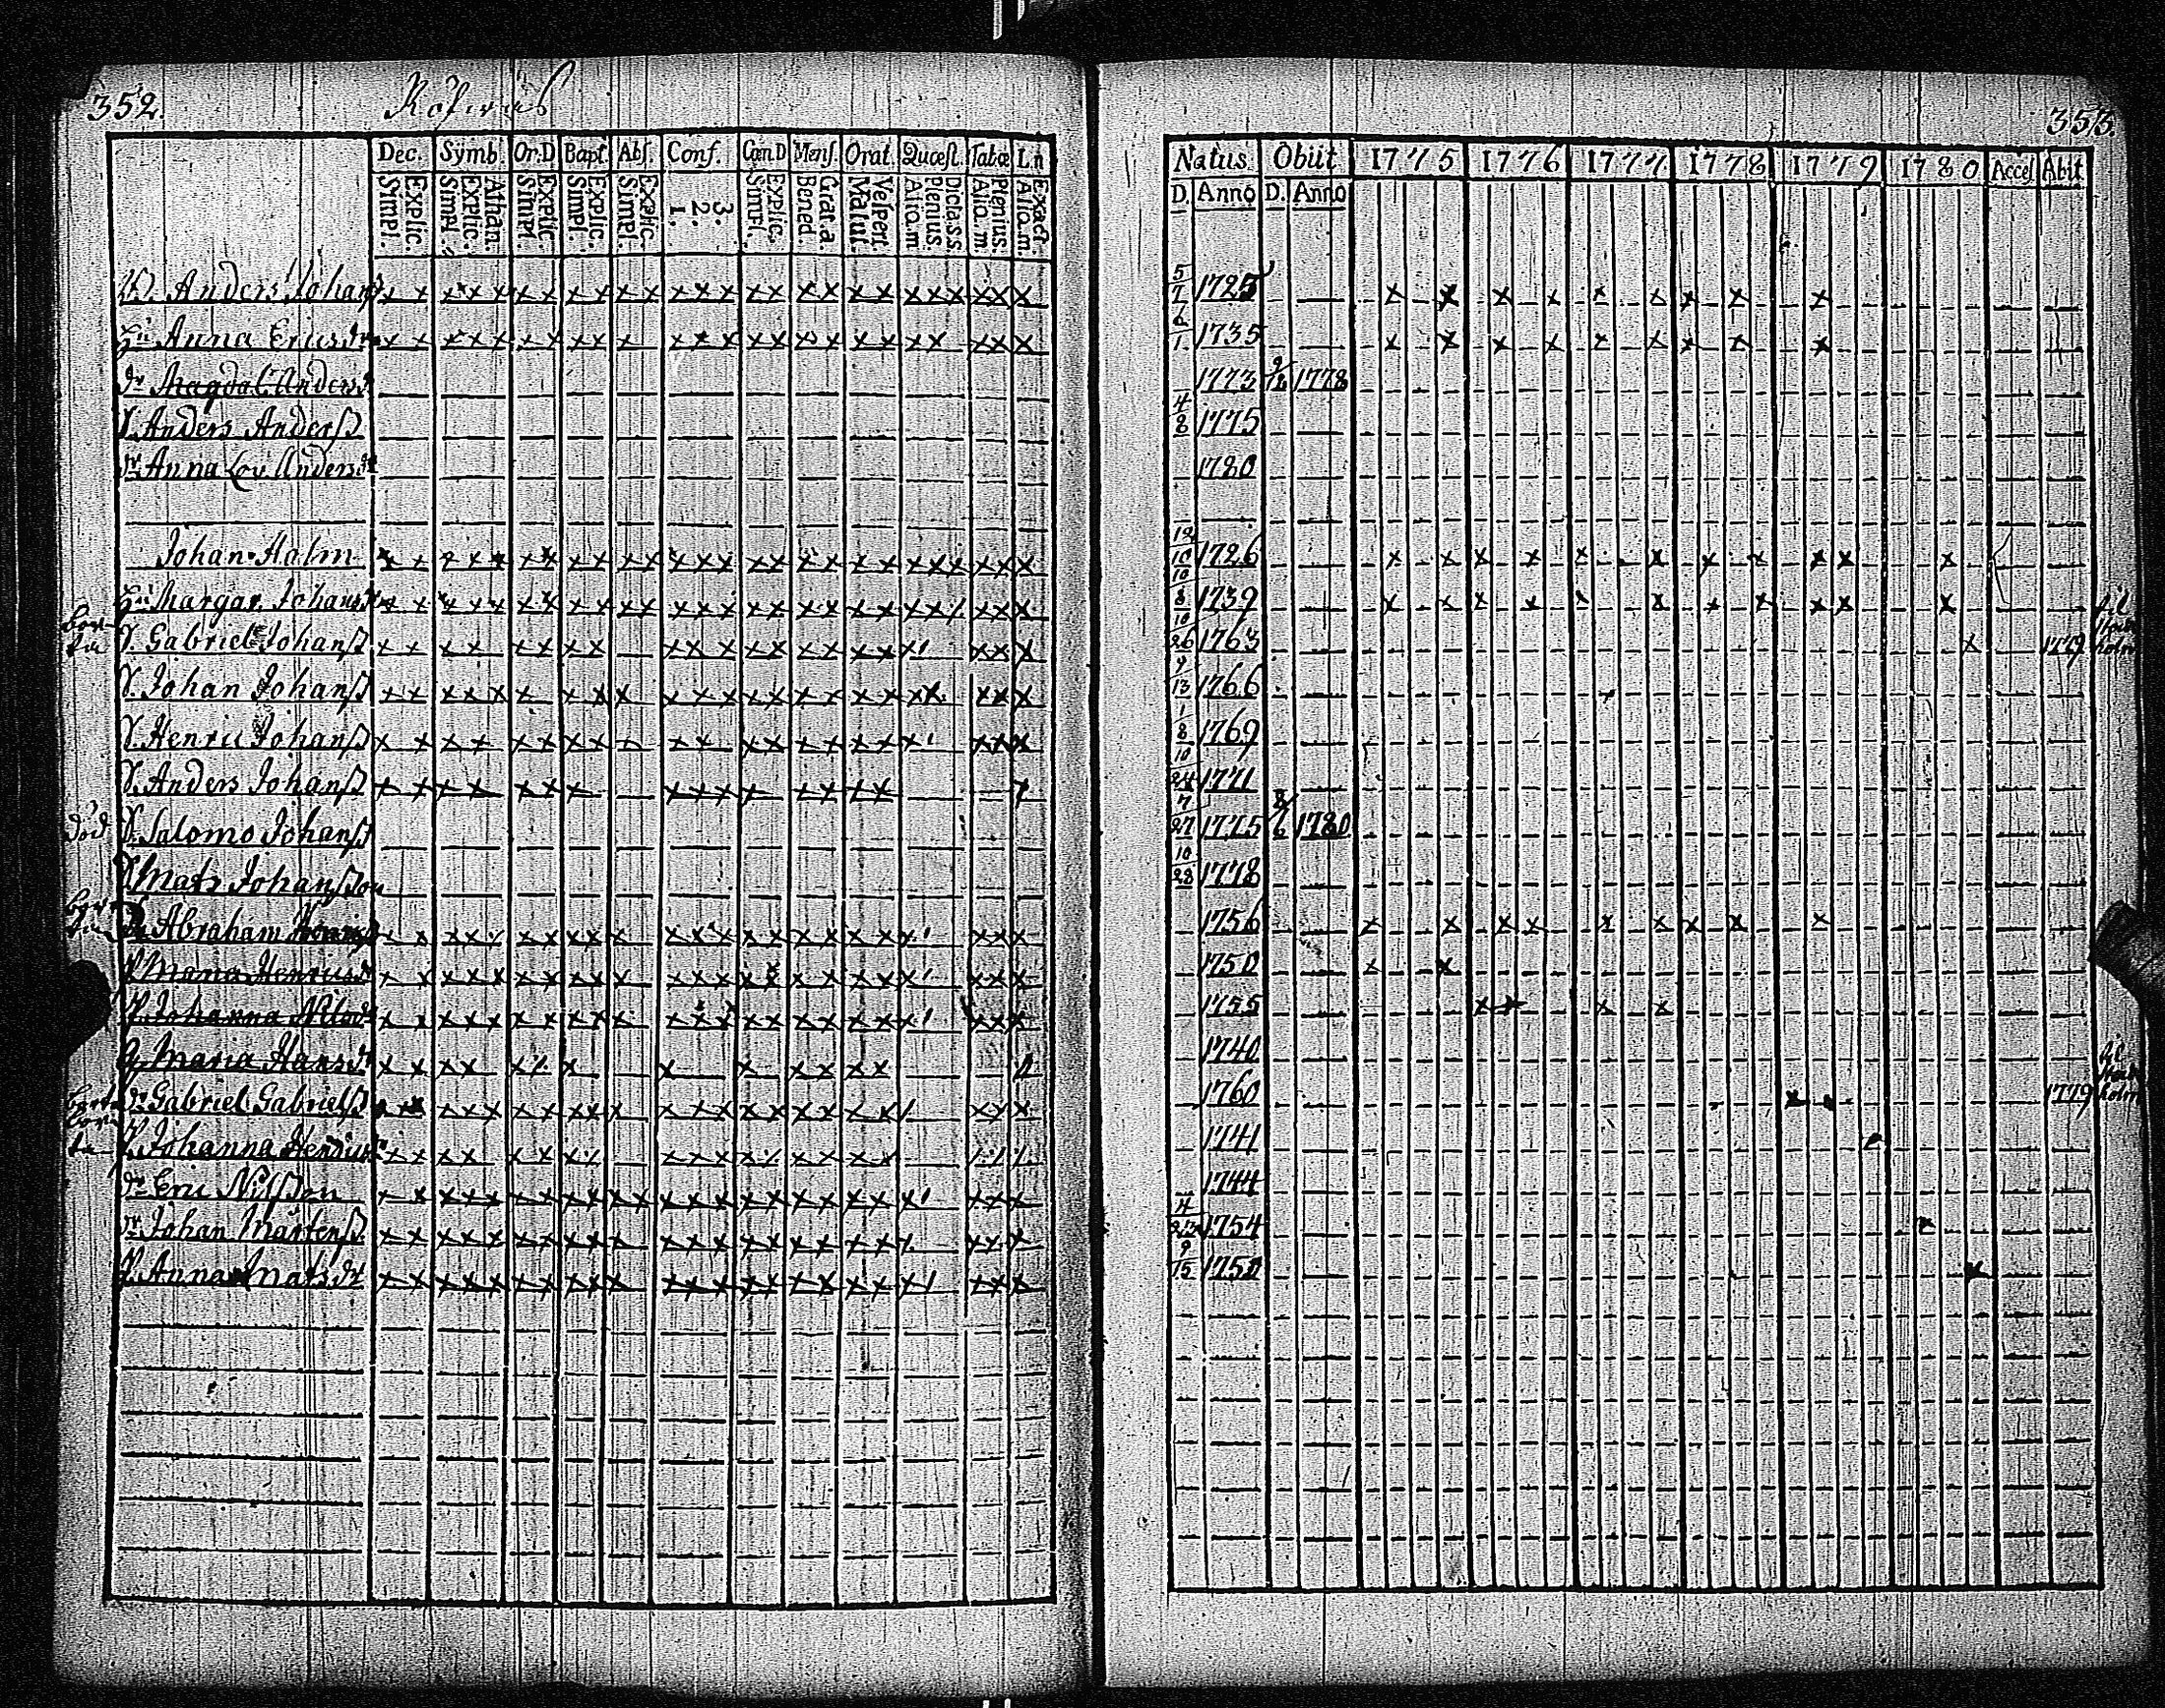 352.
Dec. Symb. Or.D Bapt. Abs. Conf. Cœn.D Mens. Orat. Quæst. Tabœ L.n
Simpl. Explic. Simpl. Explic. Athan. Simpl. Explic. Simpl. Explic. Simpl. Explic. 1. 2. 3. Simpl. Explic. Bened. Grat.a. Matut. Vespert. Aliq.m. Plenius. Dicta.s.s. Aliq.m. Plenius. Aliq.m. Exact
Anders Johanss
Hu Anna Ericsdr
dr Magdal. Andersd
S. Anders Anderss
dr Anna Lov. Andersdr
Johan Halm
Hu Margar. Johansd
S. Gabriel Johanss
S. Johan Johanss
S. Henric Johanss
S. Anders Johanss
död S. Salomo Johanss
S. Mats Johansson
Abraham
Maria Henricsd
Johanna Nilsd
Maria Hansdr
dr Gabriel Gabrielss
Johanna
dr Eric Nilsson
dr Johan Mårtenss
Anna Matsdr
353.
Natus. Obiit 1775 1776 1777 1778 1779 1780 Acces. Abiit
D. Anno D. Anno
5/7 1725
6/1 1735
1773 1778
4/8 1775
1780
12/10 1726
10/8 1739
10/26 1763 1779 til Stockholm
9/13 1766
1/8 1769
10/24 1771
7/27 1775 8/6 1780
10/28 1778
1756
1750
1755
1740
1760 1779 til Stockholm
1741
1744
4/23 1754
9/15 1750